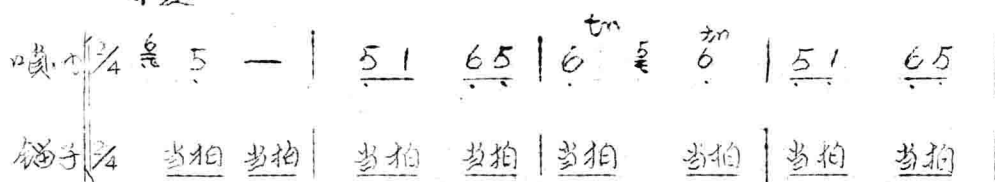 唢呐 2/4 6 5 — | 5 1 6 5 | 6 tr 5 6 tr | 5 1 6 5
镲子 2/4 当拍 当拍 | 当拍 当拍 | 当拍 当拍 | 当拍 当拍